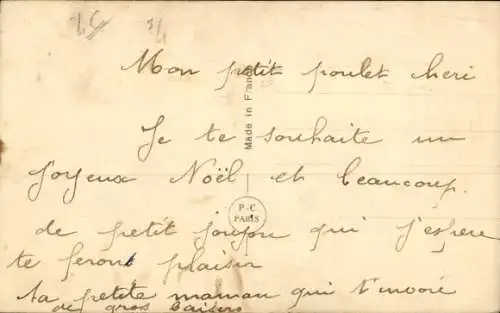 Mon petit poulet cheri
Je te souhaite un
joyeux Noël et beaucoup.
de petit joujou qui j'espere
te feront plaisir
ta petite maman qui t'envoré
de gros baisers
Made in France
P-C
PARIS